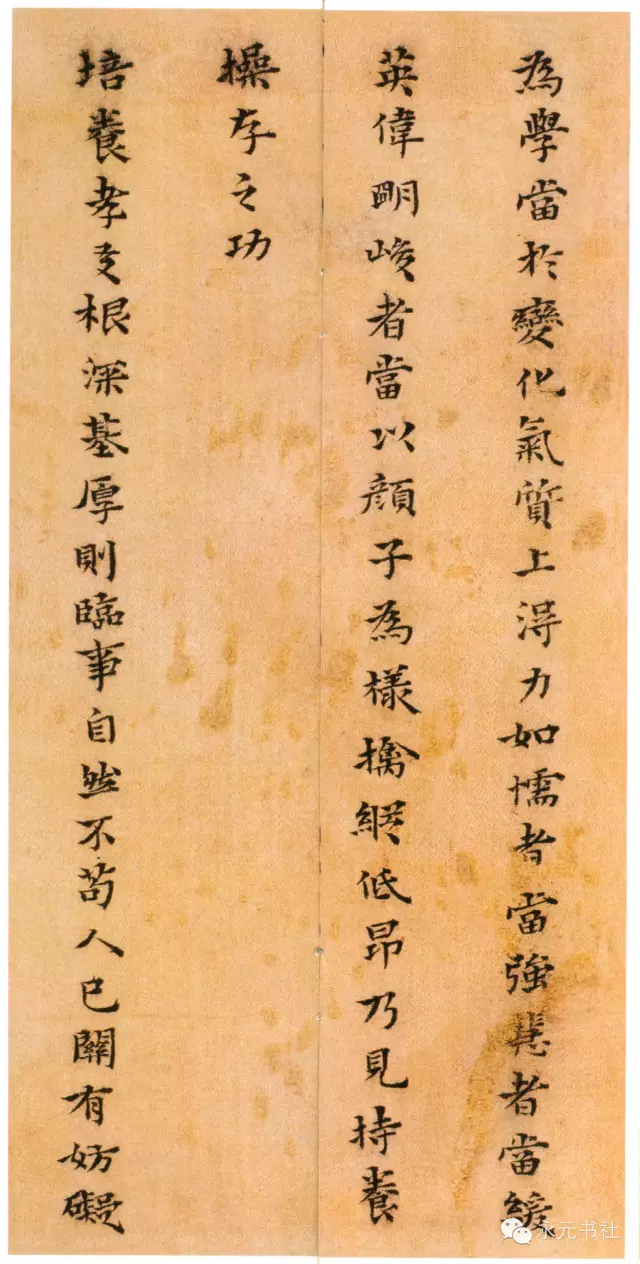 為學當於變化氣質上得力如懦者當強急者當緩
英偉明峻者當以顏子為樣擒縱低昂乃見持養
操存之功
培養孝友根深基厚則臨事自然不苟人己關有妨礙
永元书社